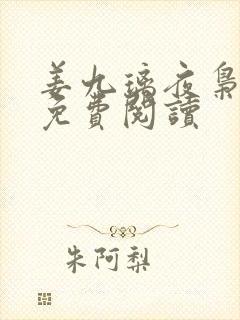 姜九璃夜梟
免費閱讀
朱阿梨